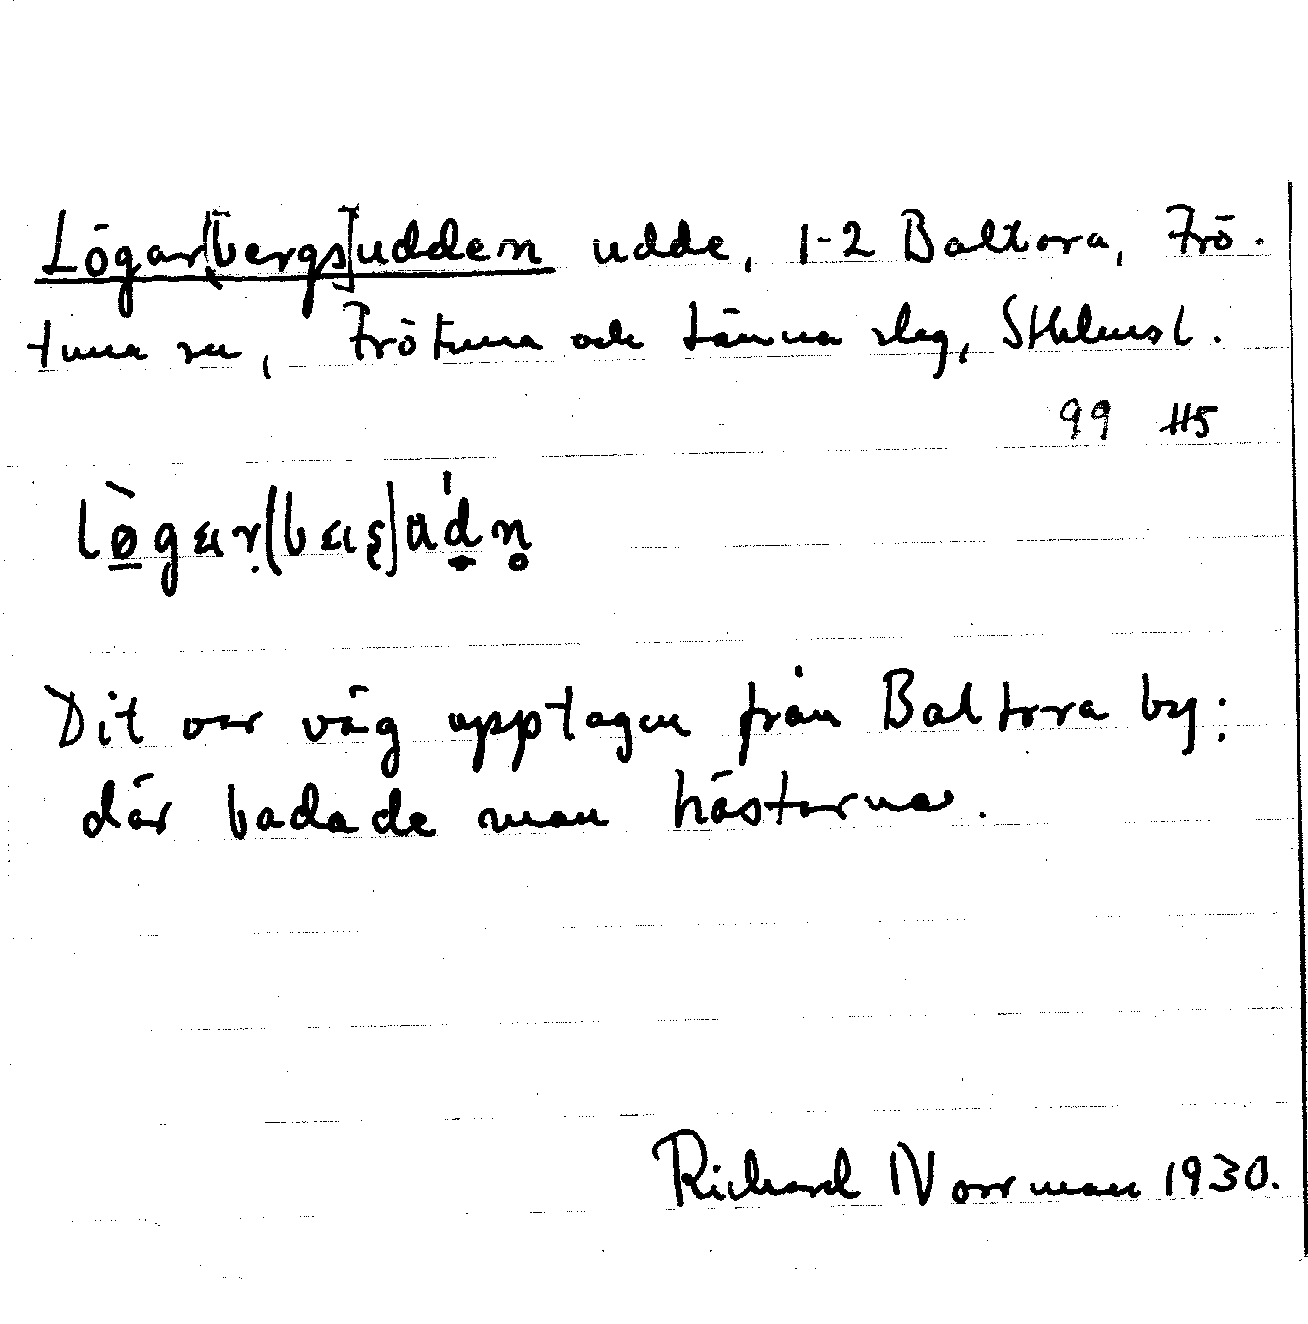 Lögar[bergs]udden udde, 1-2 Baltora, Frö-
tuna sn, Frötuna och Länna slag, Sthlmsl.
99 H5
Dit var väg upptagen från Baltora by;
där badade man hästarna.
Richard Norrman 1930.